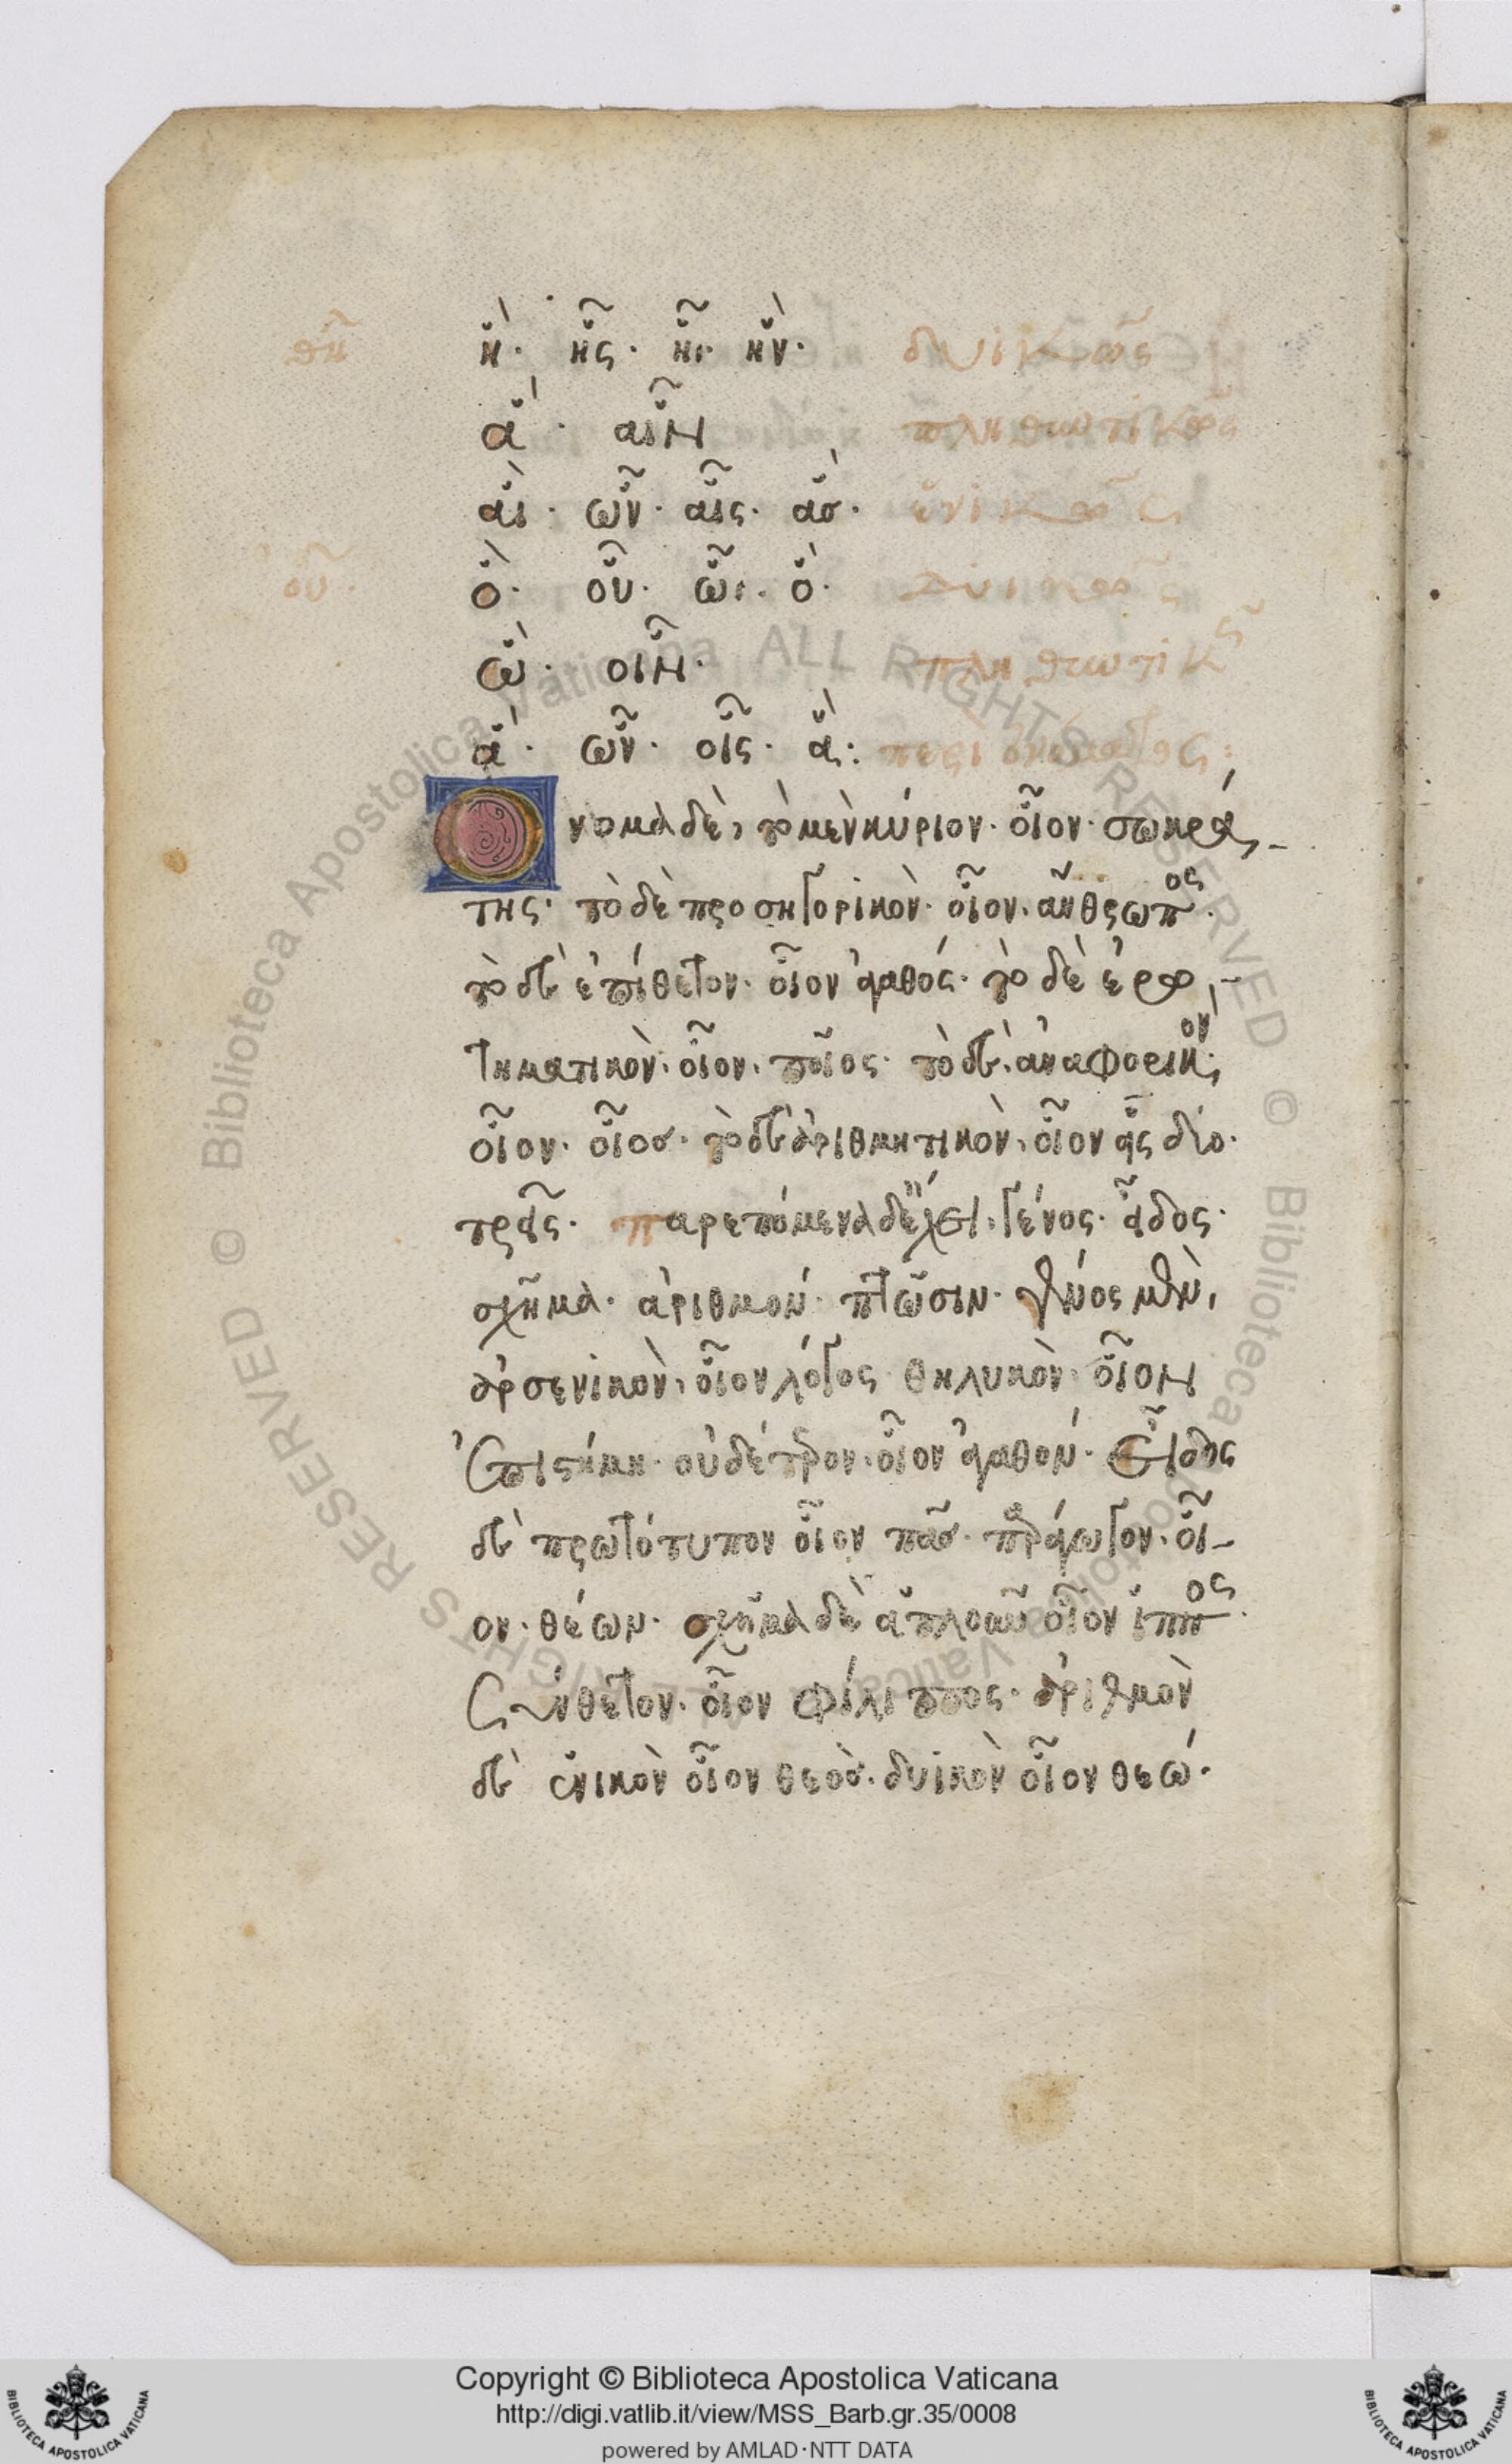 θῆ ἥ· ἧς· ἧι· ἥν· δυϊκῶς
ἅ· αἷν πληθυντικῶς
αἵ· ὧν· αἷς· ἅσ· ἑνικῶς
οὐ· ὅ· οὗ· ὧι· ὅ· δυϊκῶς
ὥ· οἷν· πληθυντικς
ἅ· ὧν· οἷς· ἅ: περὶ ὀνόματος:
Ονομα δὲ, τὸ μὲν κύριον· οἷον· σωκρά
της· τὸ δὲ προσηγορικὸν· οἷον· ἄνθρωπος·
τὸ δὲ ἐπίθετον· οἷον ἀγαθός· τὸ δὲ ἐρω
τηματικὸν· οἷον· ποῖος· τὸ δὲ· ἀναφορικὸν·
οἷον· οἷοσ· τὸ δὲ ἀριθμητικὸν· οἷον εἷς δύο·
τρεῖς· παρεπόμενα δὲ ἔχει· γένος· εἶδος·
σχῆμα· ἀριθμόν· πτῶσιν· γένος μὲν,
ἀρσενικὸν, οἷον λόγος· θηλυκὸν· οἷον
ἐπιστήμη· οὐδέτερον· οἷον ἀγαθόν· Εἶδος
δὲ πρωτότυπον οἷον πᾶσ· παράγωγον· οἷ-
ον· θέων· σχῆμα δὲ ἁπλοῦν οἷον ἵππος·
Σύνθετον· οἷον φίλιππος· ἀριθμὸν
δὲ ἑνικὸν οἷον θεὸσ· δυϊκὸν οἷον θεώ·
Copyright © Biblioteca Apostolica Vaticana
http://digi.vatlib.it/view/MSS_Barb.gr.35/0008
powered by AMLAD·NTT DATA